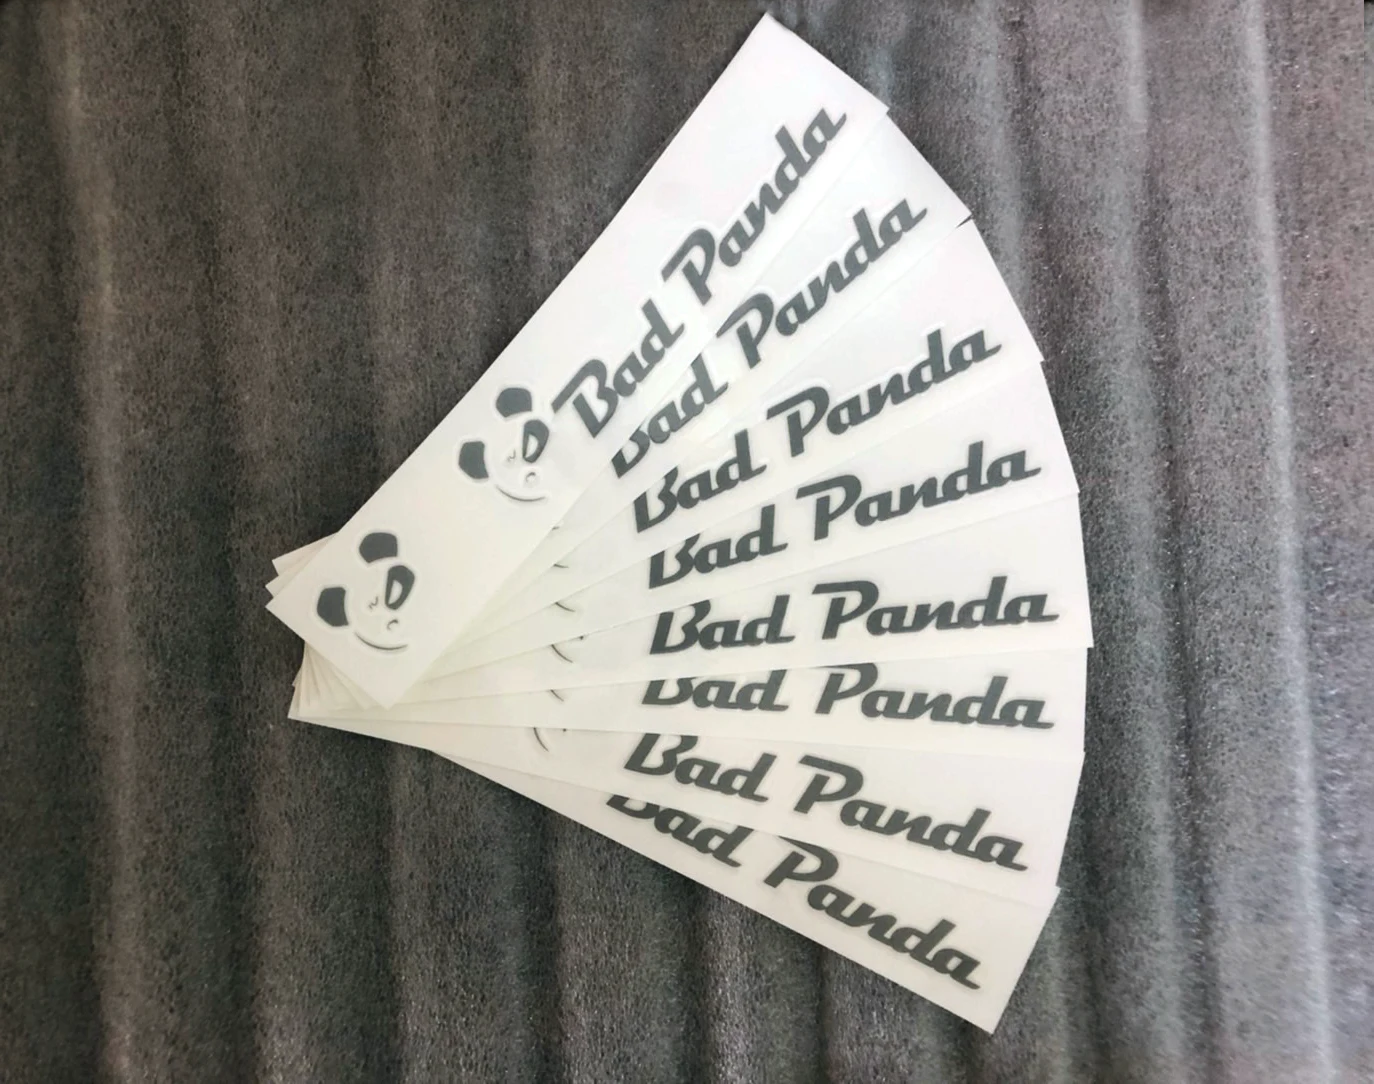 Bad Panda
Bad Panda
Bad Panda
Bad Panda
Bad Panda
Bad Panda
Bad Panda
Bad Panda